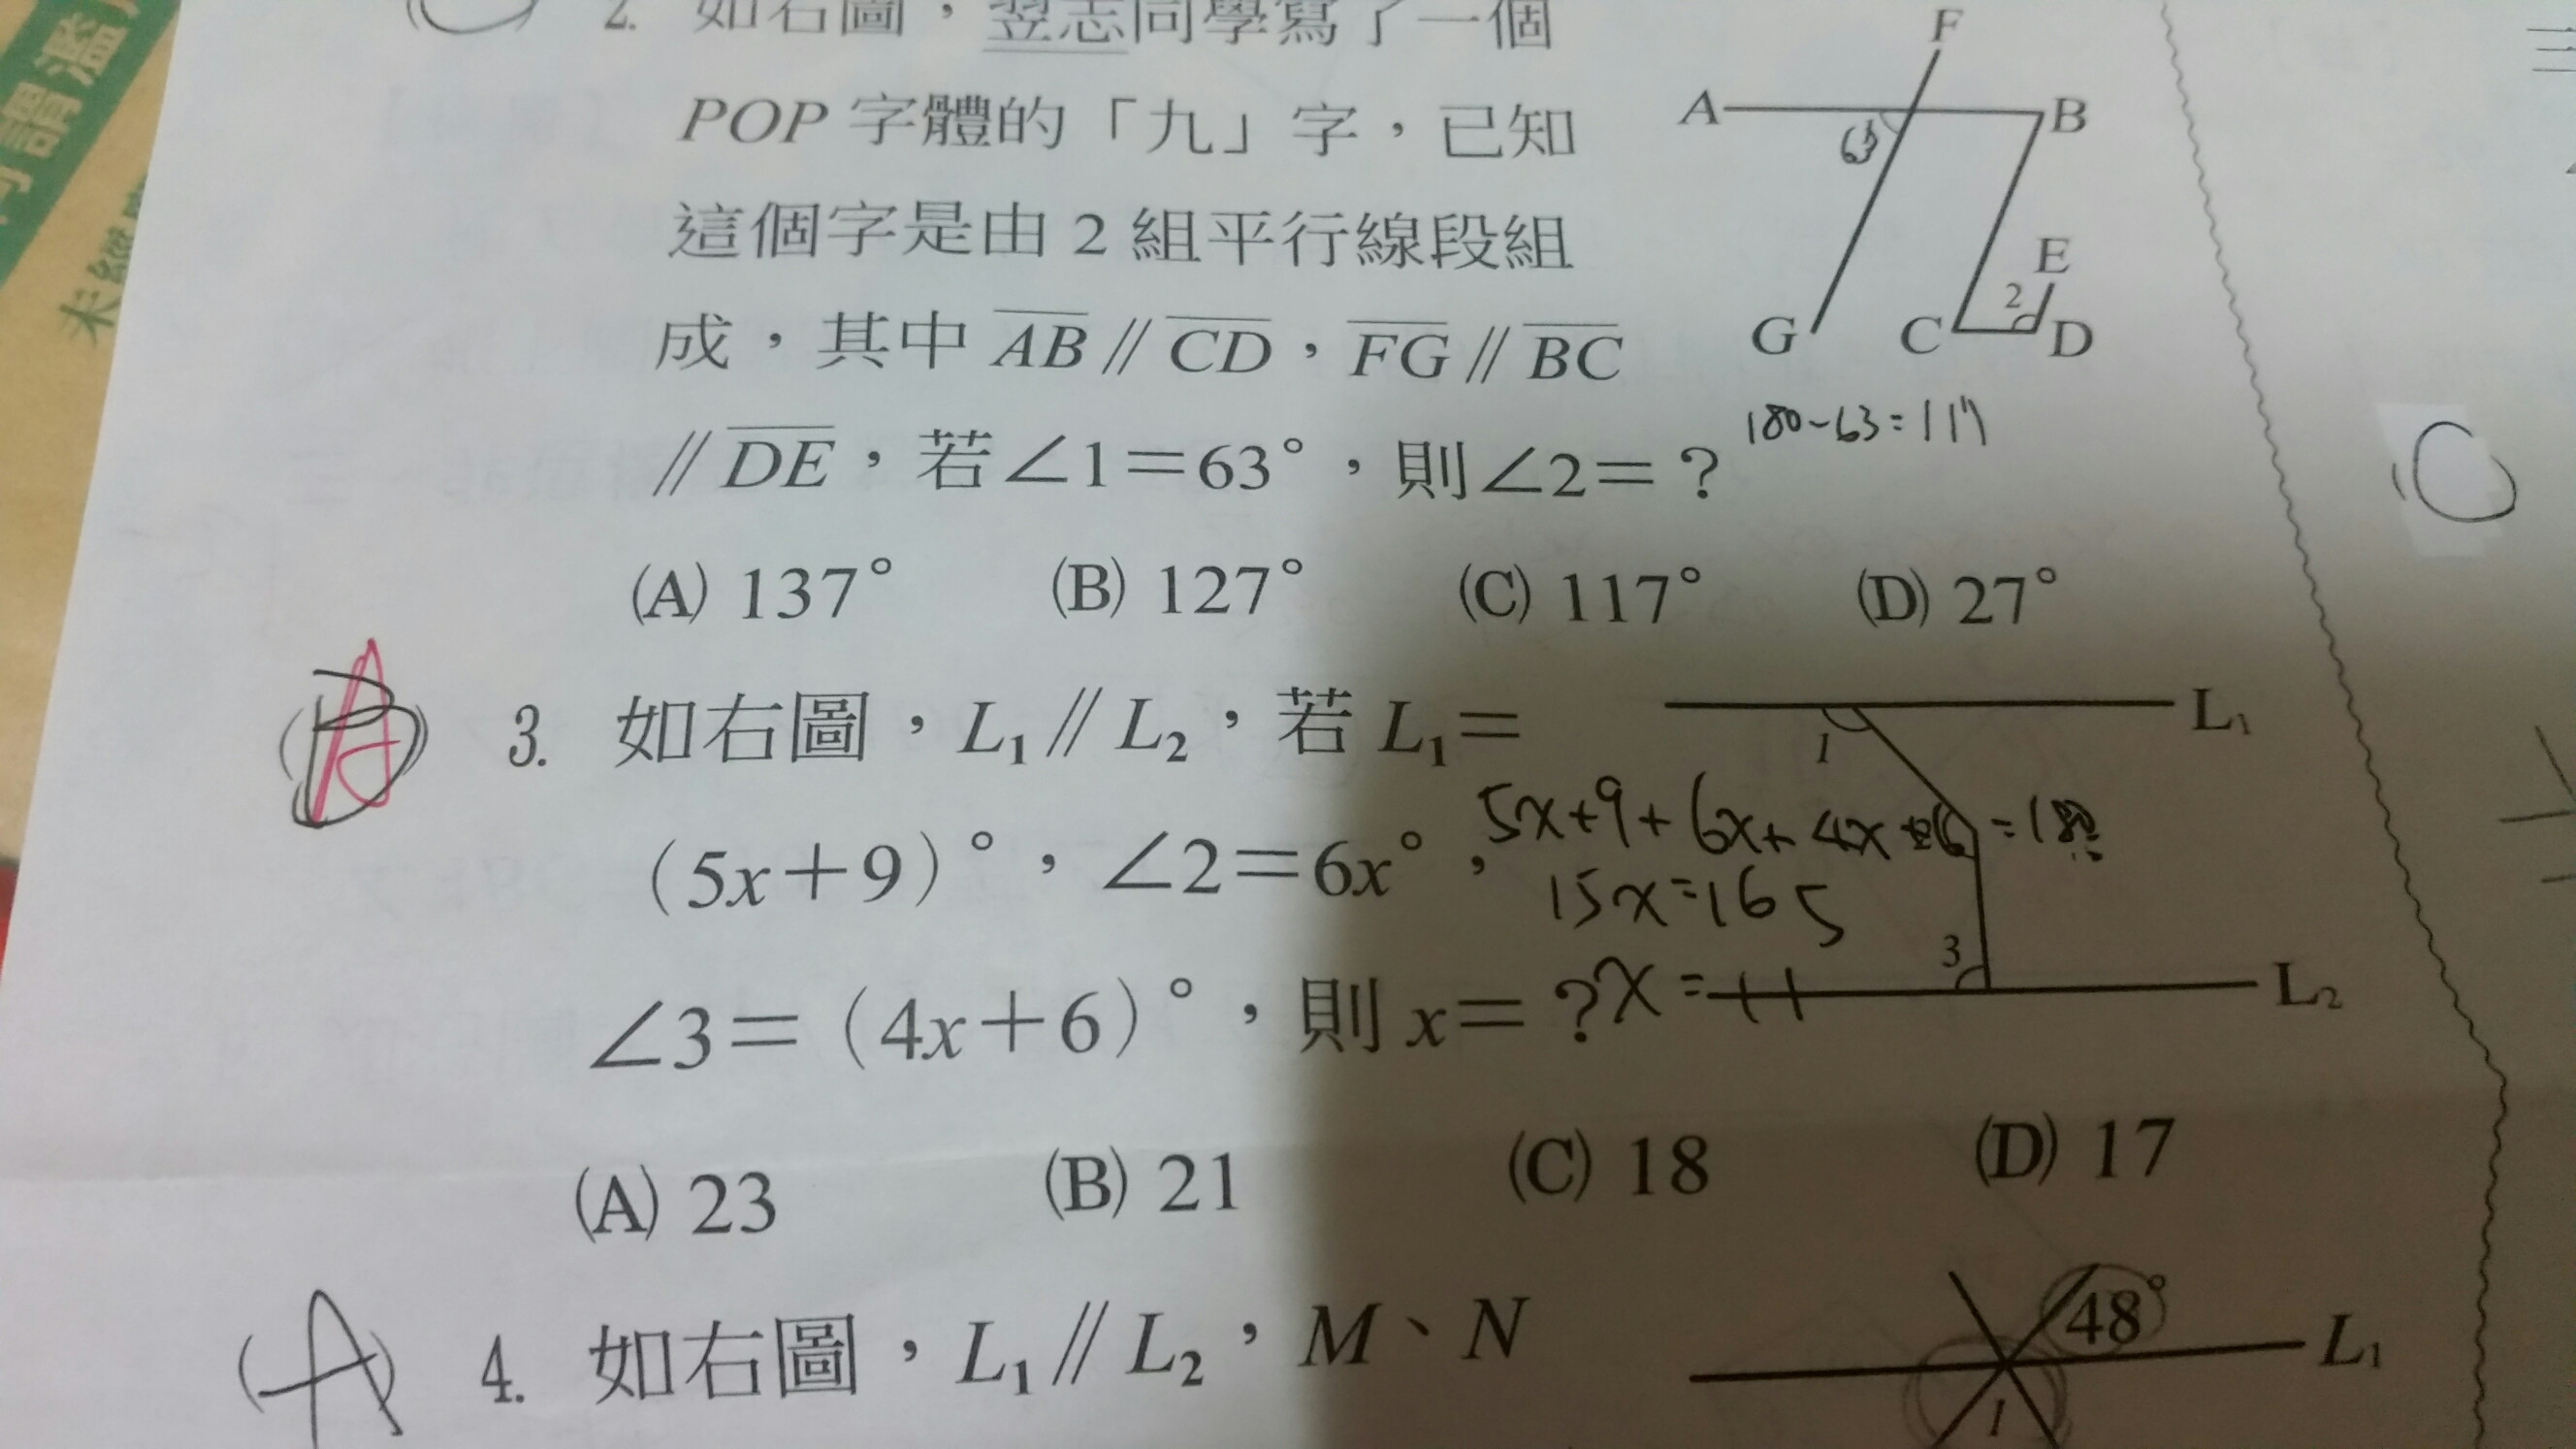 2. 如右圖,翌志同學寫了一個
POP 字體的「九」字,已知
這個字是由 2 組平行線段組
成,其中 AB // CD,FG // BC
// DE,若∠1=63°,則∠2=?
(A) 137° (B) 127° (C) 117° (D) 27°
F
A
B
63
E
2
G
C
D
180-63=117
(B) A 3. 如右圖,L₁ // L₂,若 L₁=
(5x+9)°,∠2=6x°,
∠3=(4x+6)°,則 x=?
(A) 23 (B) 21 (C) 18 (D) 17
L₁
1
5x+9+6x+4x+6=180
15x=165
x=11
3
L₂
(A) 4. 如右圖,L₁ // L₂,M、N
48°
L₁
1